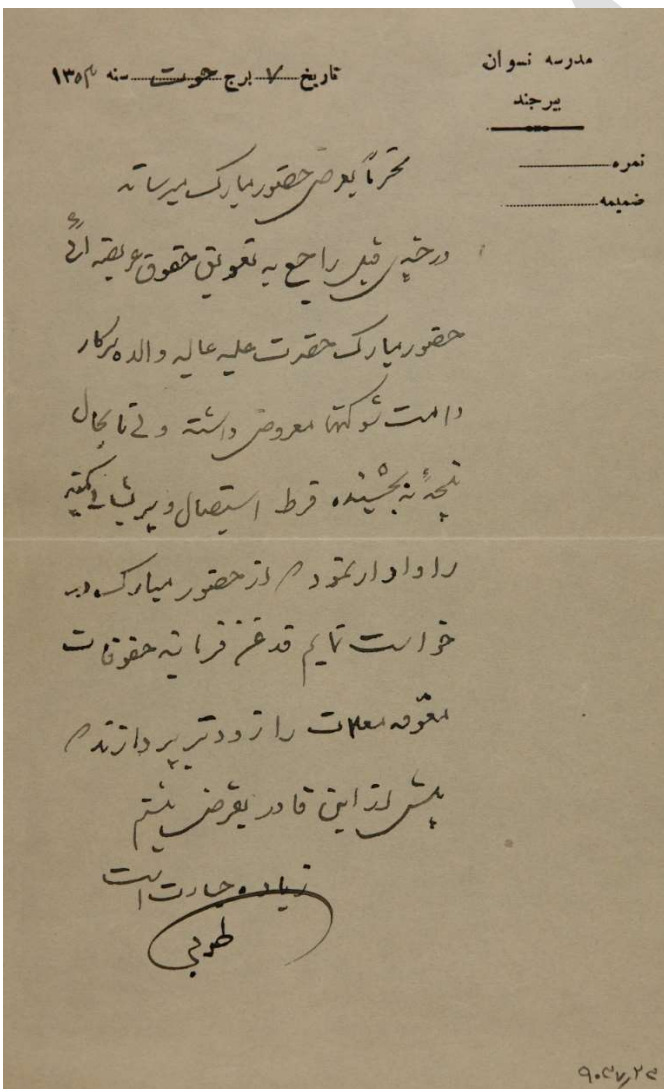 مدرسه نسوان
بیرجند
تاریخ ۷ برج حوت سنه ۱۳۰۳
نمره
ضمیمه
محترماً بعرض حضور مبارک میرساند
در چندی قبل راجع به تعویق حقوق عریضه ای
حضور مبارک حضرت علیه عالیه والده سرکار
دامت شوکتها معروض داشته ولی تا بحال
نتیجهٔ نبخشیده فرط استیصال و پریشانی کمینه
را وادار نمود که از حضور مبارک در
خواست نمایم قدغن فرمایند حقوقات
معوقه معلمات را زودتر بپردازند که
بیش از این قادر بقرض نیستم
زیاده جسارت است
طوبی